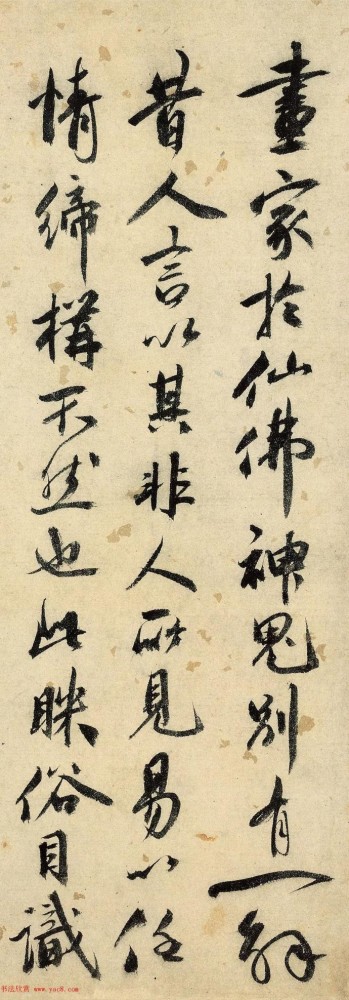 畫家於仙佛神鬼別有一解
昔人言以其非人所見易以任
情締構天然也此眯俗目識
书法欣赏 www.yac8.com